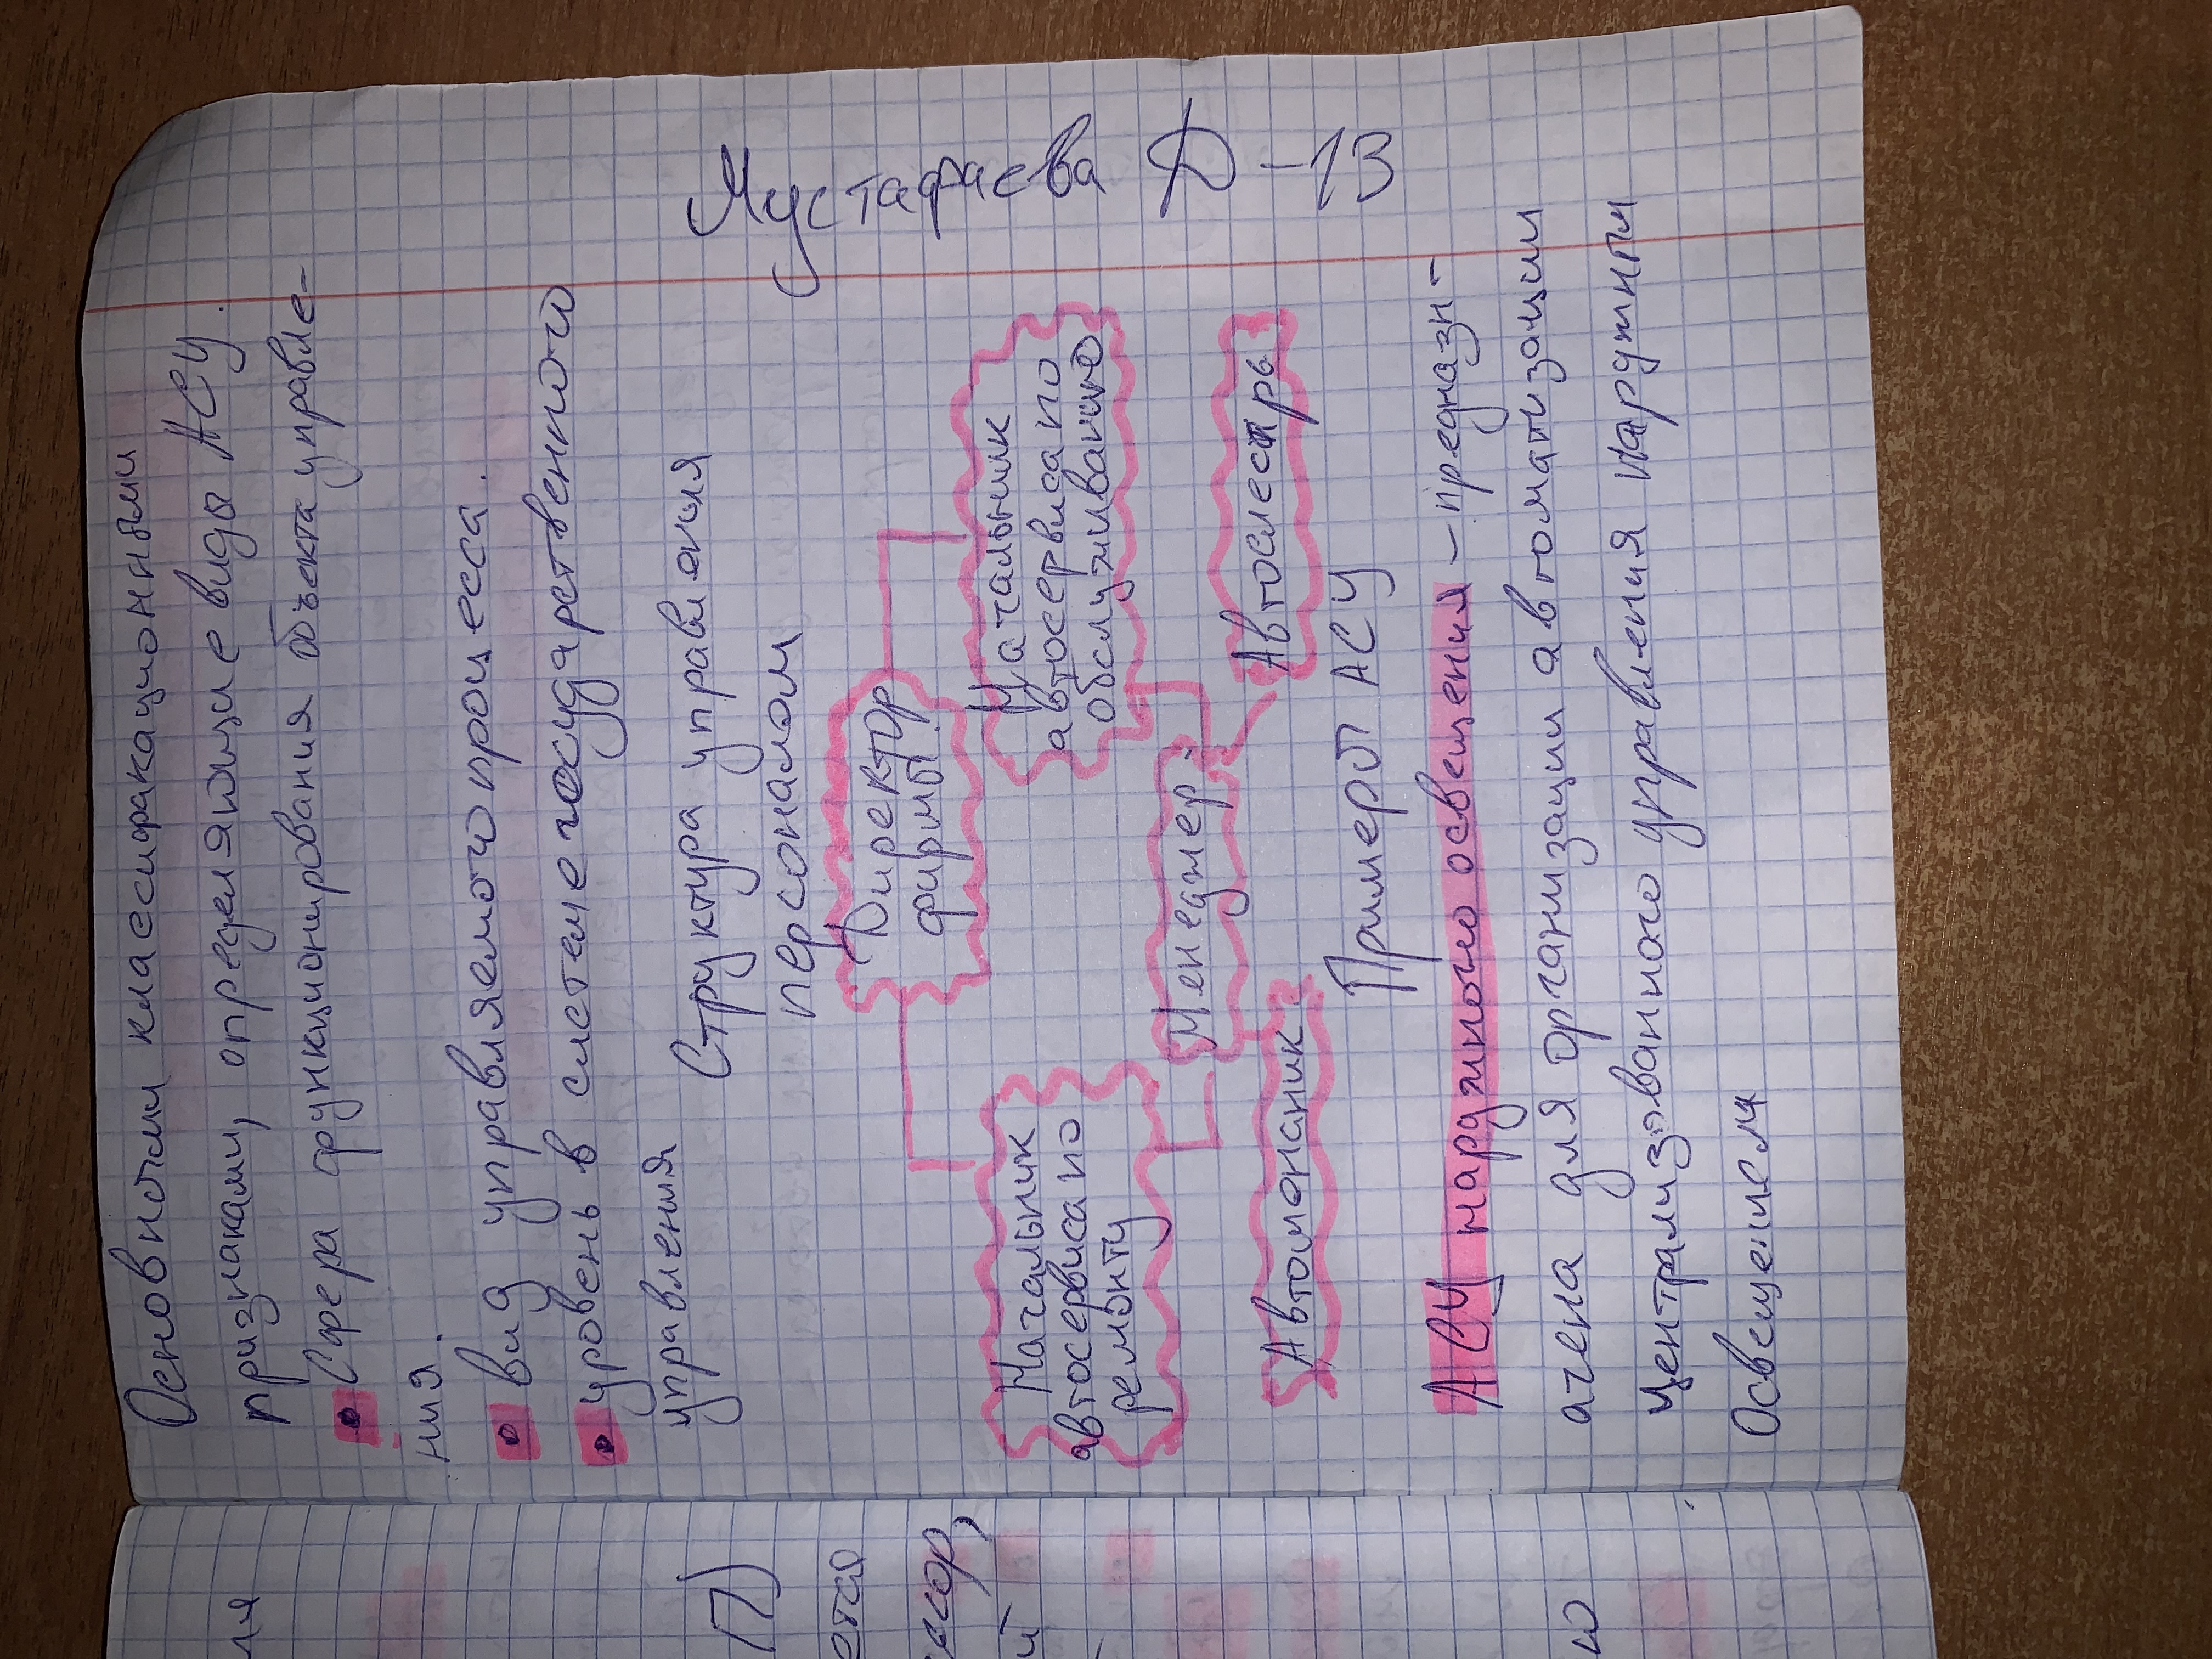 Основными классификационными
признаками, определяющие виды АСУ.
• Сфера функционирования объекта управле-
ния.
• вид управляемого процесса.
• уровень в системе государственного
управления
Структура управления
персоналом
Директор
фирмы.
Начальник
автосервиса по
ремонту
Начальник
автосервиса по
обслуживанию
Менеджер.
Автомеханик
Автослесарь
Примеры АСУ
АСУ наружного освещения – предназн-
ачена для организации автоматизации
централизованного управления наружным
Освещением
Мустафаева Д-13
ля
П)
ется
ссор,
й
ю